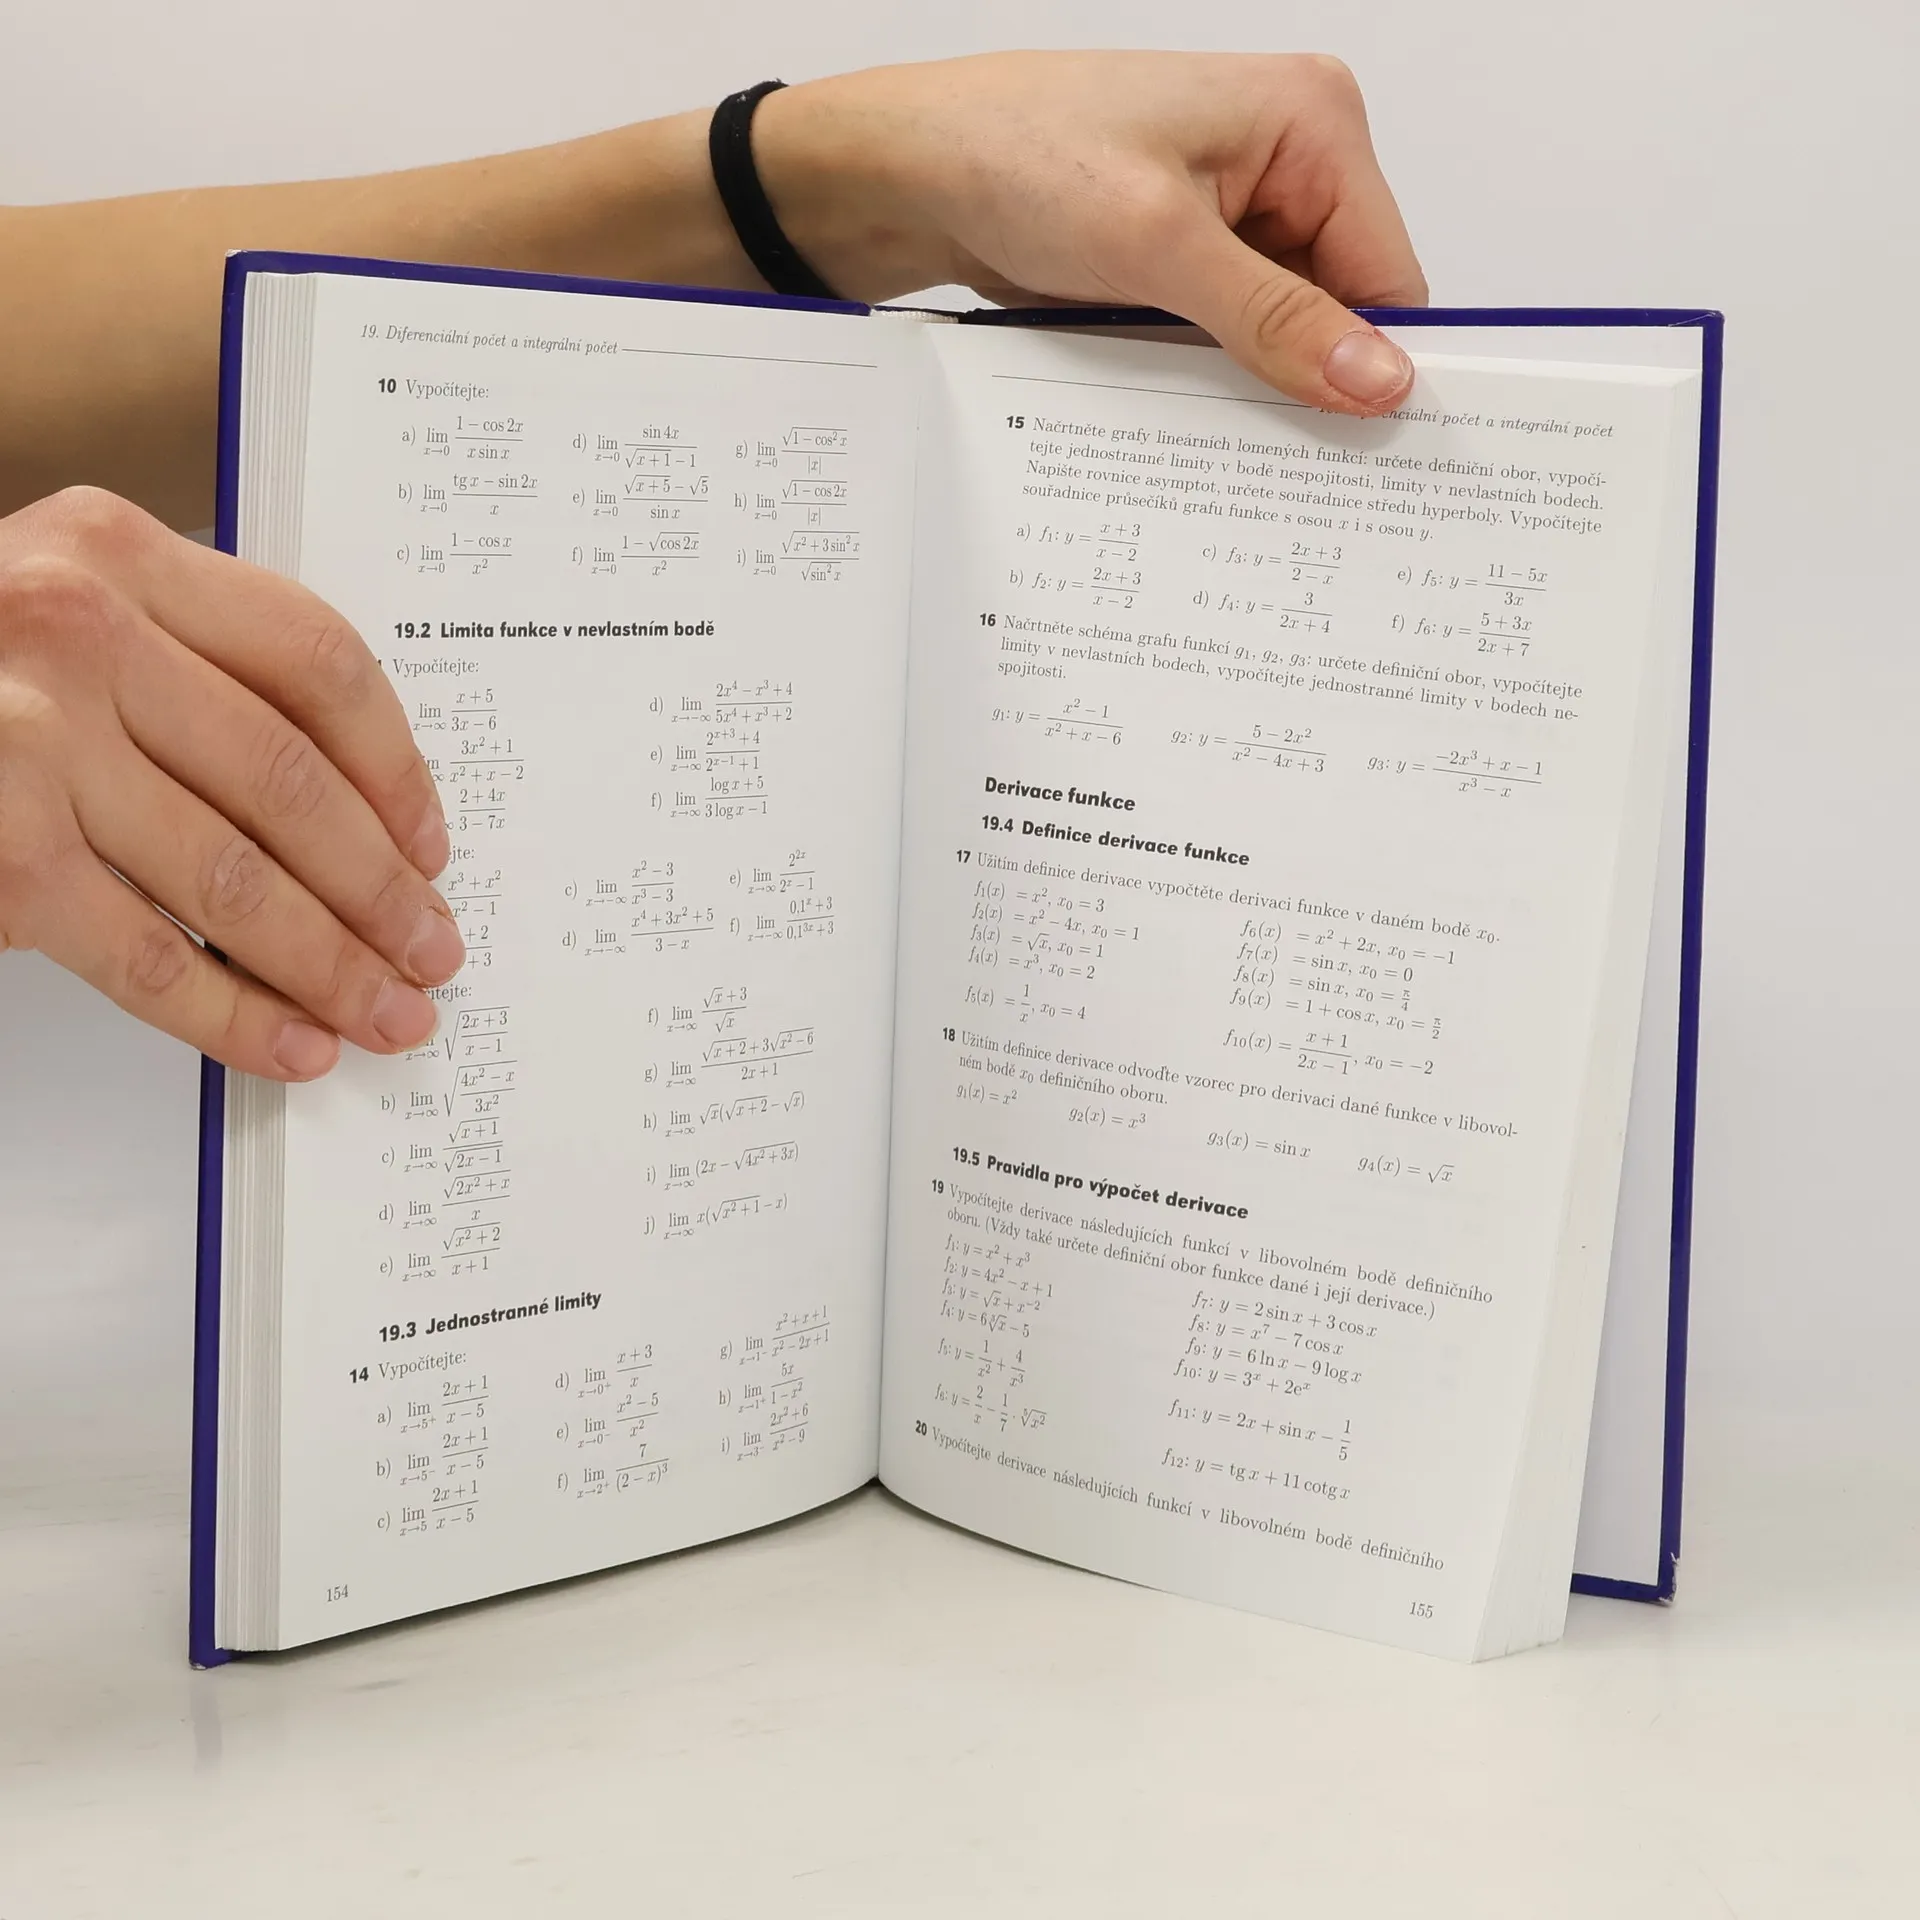 19. Diferenciální počet a integrální počet
10 Vypočítejte:
a) lim x→0 (1 − cos 2x)/(x sin x)
d) lim x→0 (sin 4x)/(√(x + 1) − 1)
g) lim x→0 √(1 − cos² x)/|x|
b) lim x→0 (tg x − sin 2x)/x
e) lim x→0 (√(x + 5) − √5)/(sin x)
h) lim x→0 √(1 − cos 2x)/|x|
c) lim x→0 (1 − cos x)/x²
f) lim x→0 (1 − √(cos 2x))/x²
i) lim x→0 √(x² + 3 sin² x)/√(sin² x)
19.2 Limita funkce v nevlastním bodě
Vypočítejte:
lim x→∞ (x + 5)/(3x − 6)
d) lim x→−∞ (2x⁴ − x³ + 4)/(5x⁴ + x³ + 2)
(3x² + 1)/(x² + x − 2)
e) lim x→∞ (2ˣ⁺³ + 4)/(2ˣ⁻¹ + 1)
(2 + 4x)/(3 − 7x)
f) lim x→∞ (log x + 5)/(3 log x − 1)
c) lim x→−∞ (x² − 3)/(x³ − 3)
e) lim x→∞ 2²ˣ/(2ˣ − 1)
(x³ + x²)/(x² − 1)
d) lim x→−∞ (x⁴ + 3x² + 5)/(3 − x)
f) lim x→−∞ (0,1ˣ + 3)/(0,1³ˣ + 3)
+ 2
+ 3
x→∞ √((2x + 3)/(x − 1))
f) lim x→∞ (√x + 3)/√x
b) lim x→∞ √((4x² − x)/(3x²))
g) lim x→∞ (√(x + 2) + 3√(x² − 6))/(2x + 1)
c) lim x→∞ √(x + 1)/√(2x − 1)
h) lim x→∞ √x(√(x + 2) − √x)
d) lim x→∞ √(2x² + x)/x
i) lim x→∞ (2x − √(4x² + 3x))
e) lim x→∞ √(x² + 2)/(x + 1)
j) lim x→∞ x(√(x² + 1) − x)
19.3 Jednostranné limity
14 Vypočítejte:
a) lim x→5⁺ (2x + 1)/(x − 5)
d) lim x→0⁺ (x + 3)/x
g) lim x→1⁻ (x² + x + 1)/(x² − 2x + 1)
b) lim x→5⁻ (2x + 1)/(x − 5)
e) lim x→0⁻ (x² − 5)/x²
h) lim x→1⁺ 5x/(1 − x²)
c) lim x→5 (2x + 1)/(x − 5)
f) lim x→2⁺ 7/(2 − x)³
i) lim x→3⁻ (2x² + 6)/(x² − 9)
154
počet a integrální počet
15 Načrtněte grafy lineárních lomených funkcí: určete definiční obor, vypočí-
tejte jednostranné limity v bodě nespojitosti, limity v nevlastních bodech.
Napište rovnice asymptot, určete souřadnice středu hyperboly. Vypočítejte
souřadnice průsečíků grafu funkce s osou x i s osou y.
a) f₁: y = (x + 3)/(x − 2)
c) f₃: y = (2x + 3)/(2 − x)
e) f₅: y = (11 − 5x)/(3x)
b) f₂: y = (2x + 3)/(x − 2)
d) f₄: y = 3/(2x + 4)
f) f₆: y = (5 + 3x)/(2x + 7)
16 Načrtněte schéma grafu funkcí g₁, g₂, g₃: určete definiční obor, vypočítejte
limity v nevlastních bodech, vypočítejte jednostranné limity v bodech ne-
spojitosti.
g₁: y = (x² − 1)/(x² + x − 6)
g₂: y = (5 − 2x²)/(x² − 4x + 3)
g₃: y = (−2x³ + x − 1)/(x³ − x)
Derivace funkce
19.4 Definice derivace funkce
17 Užitím definice derivace vypočtěte derivaci funkce v daném bodě x₀.
f₁(x) = x², x₀ = 3
f₂(x) = x² − 4x, x₀ = 1
f₃(x) = √x, x₀ = 1
f₄(x) = x³, x₀ = 2
f₅(x) = 1/x, x₀ = 4
f₆(x) = x² + 2x, x₀ = −1
f₇(x) = sin x, x₀ = 0
f₈(x) = sin x, x₀ = π/4
f₉(x) = 1 + cos x, x₀ = π/2
f₁₀(x) = (x + 1)/(2x − 1), x₀ = −2
18 Užitím definice derivace odvoďte vzorec pro derivaci dané funkce v libovol-
ném bodě x₀ definičního oboru.
g₁(x) = x²
g₂(x) = x³
g₃(x) = sin x
g₄(x) = √x
19.5 Pravidla pro výpočet derivace
19 Vypočítejte derivace následujících funkcí v libovolném bodě definičního
oboru. (Vždy také určete definiční obor funkce dané i její derivace.)
f₁: y = x² + x³
f₂: y = 4x² − x + 1
f₃: y = √x + x⁻²
f₄: y = 6∛x − 5
f₅: y = 1/x² + 4/x³
f₆: y = 2/x − 1/7 · ⁵√x²
f₇: y = 2 sin x + 3 cos x
f₈: y = x⁷ − 7 cos x
f₉: y = 6 ln x − 9 log x
f₁₀: y = 3ˣ + 2eˣ
f₁₁: y = 2x + sin x − 1/5
f₁₂: y = tg x + 11 cotg x
20 Vypočítejte derivace následujících funkcí v libovolném bodě definičního
155